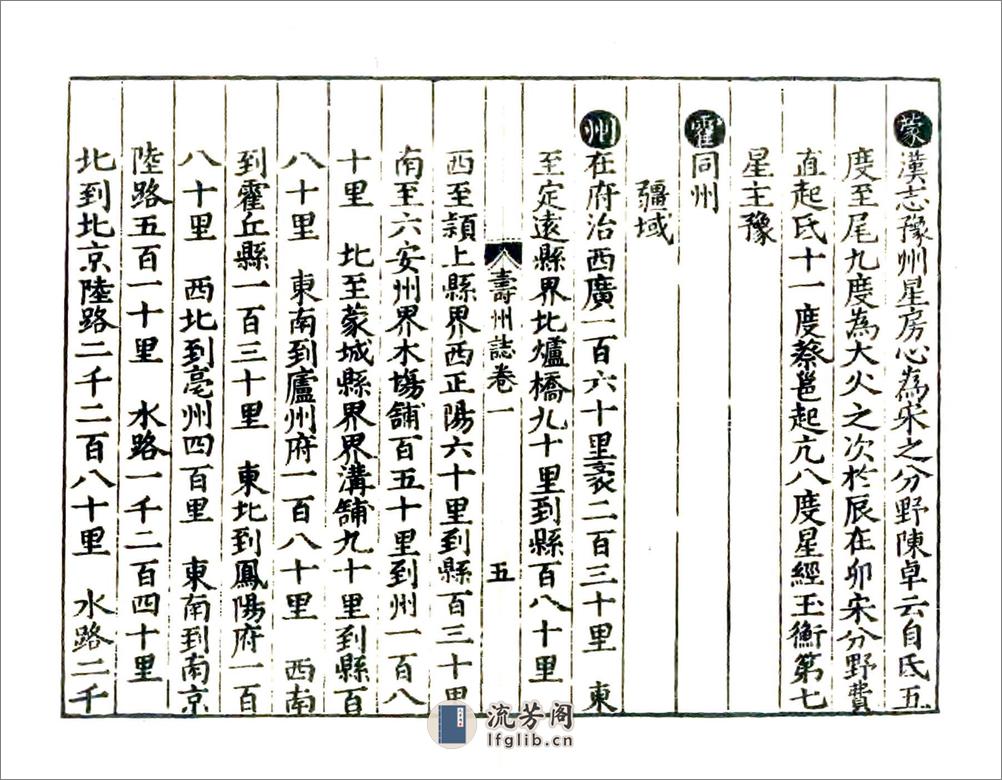 蒙漢志豫州星房心為宋之分野陳卓云自氐五
度至尾九度為大火之次於辰在卯宋分野費
直起氐十一度蔡邕起亢八度星經玉衡第七
星主豫
霍同州
疆域
州在府治西廣一百六十里袤二百三十里 東
至定遠縣界北爐橋九十里到縣百八十里
壽州誌卷一 五
西至潁上縣界西正陽六十里到縣百三十里
南至六安州界木塲舖百五十里到州一百八
十里 北至蒙城縣界界溝舖九十里到縣百
八十里 東南到廬州府一百八十里 西南
到霍丘縣一百三十里 東北到鳳陽府一百
八十里 西北到亳州四百里 東南到南京
陸路五百一十里 水路一千二百四十里
北到北京陸路二千二百八十里 水路二千
流芳阁
lfglib.cn